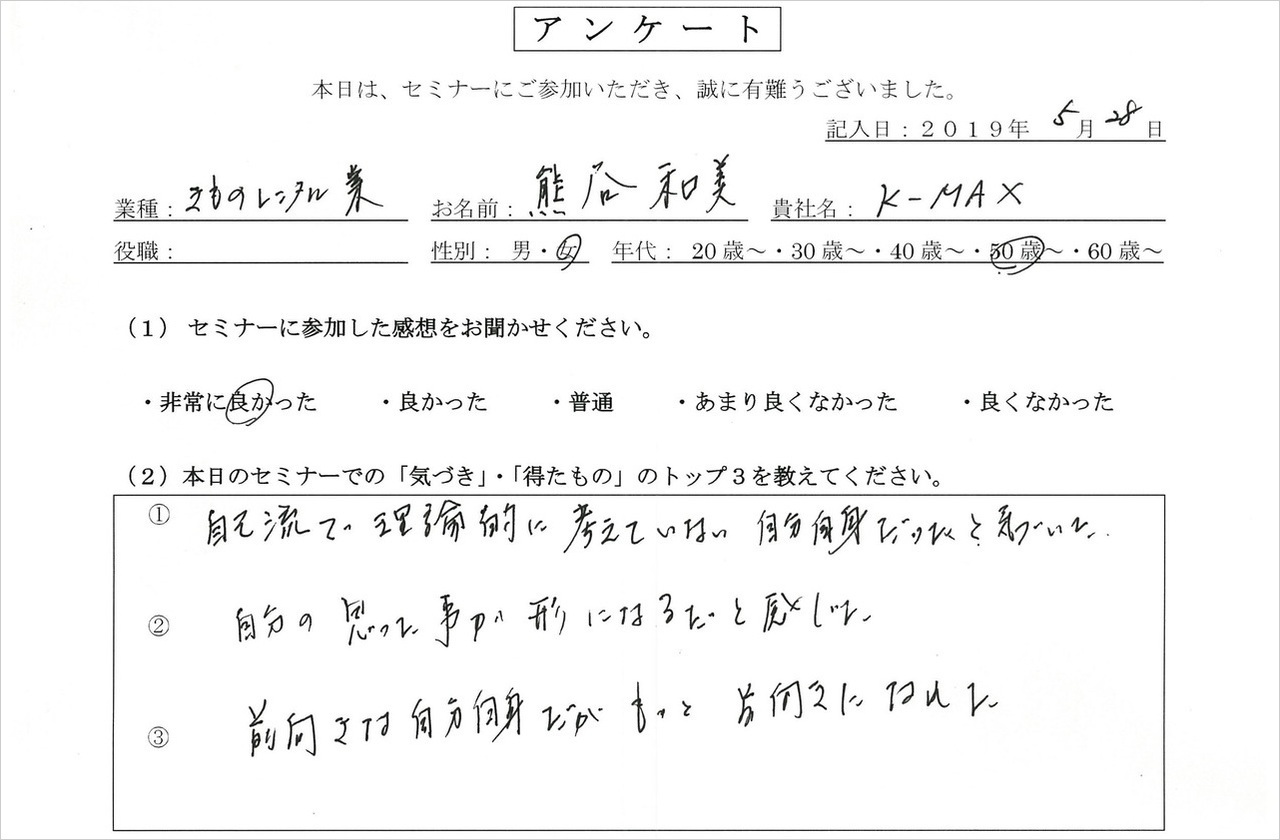 アンケート
本日は、セミナーにご参加いただき、誠に有難うございました。
記入日：２０１９年 5月 28日
業種：きものレンタル業 お名前：熊谷和美 貴社名：K-MAX
役職： 性別： 男・女 年代： 20歳～・30歳～・40歳～・50歳～・60歳～
（１） セミナーに参加した感想をお聞かせください。
・非常に良かった ・良かった ・普通 ・あまり良くなかった ・良くなかった
（２）本日のセミナーでの「気づき」・「得たもの」のトップ３を教えてください。
① 自己流で理論的に考えていない自分自身だったと気づいた.
② 自分の思った事が形になるだと感じた.
③ 前向きな自分自身だがもっと前向きになれた.